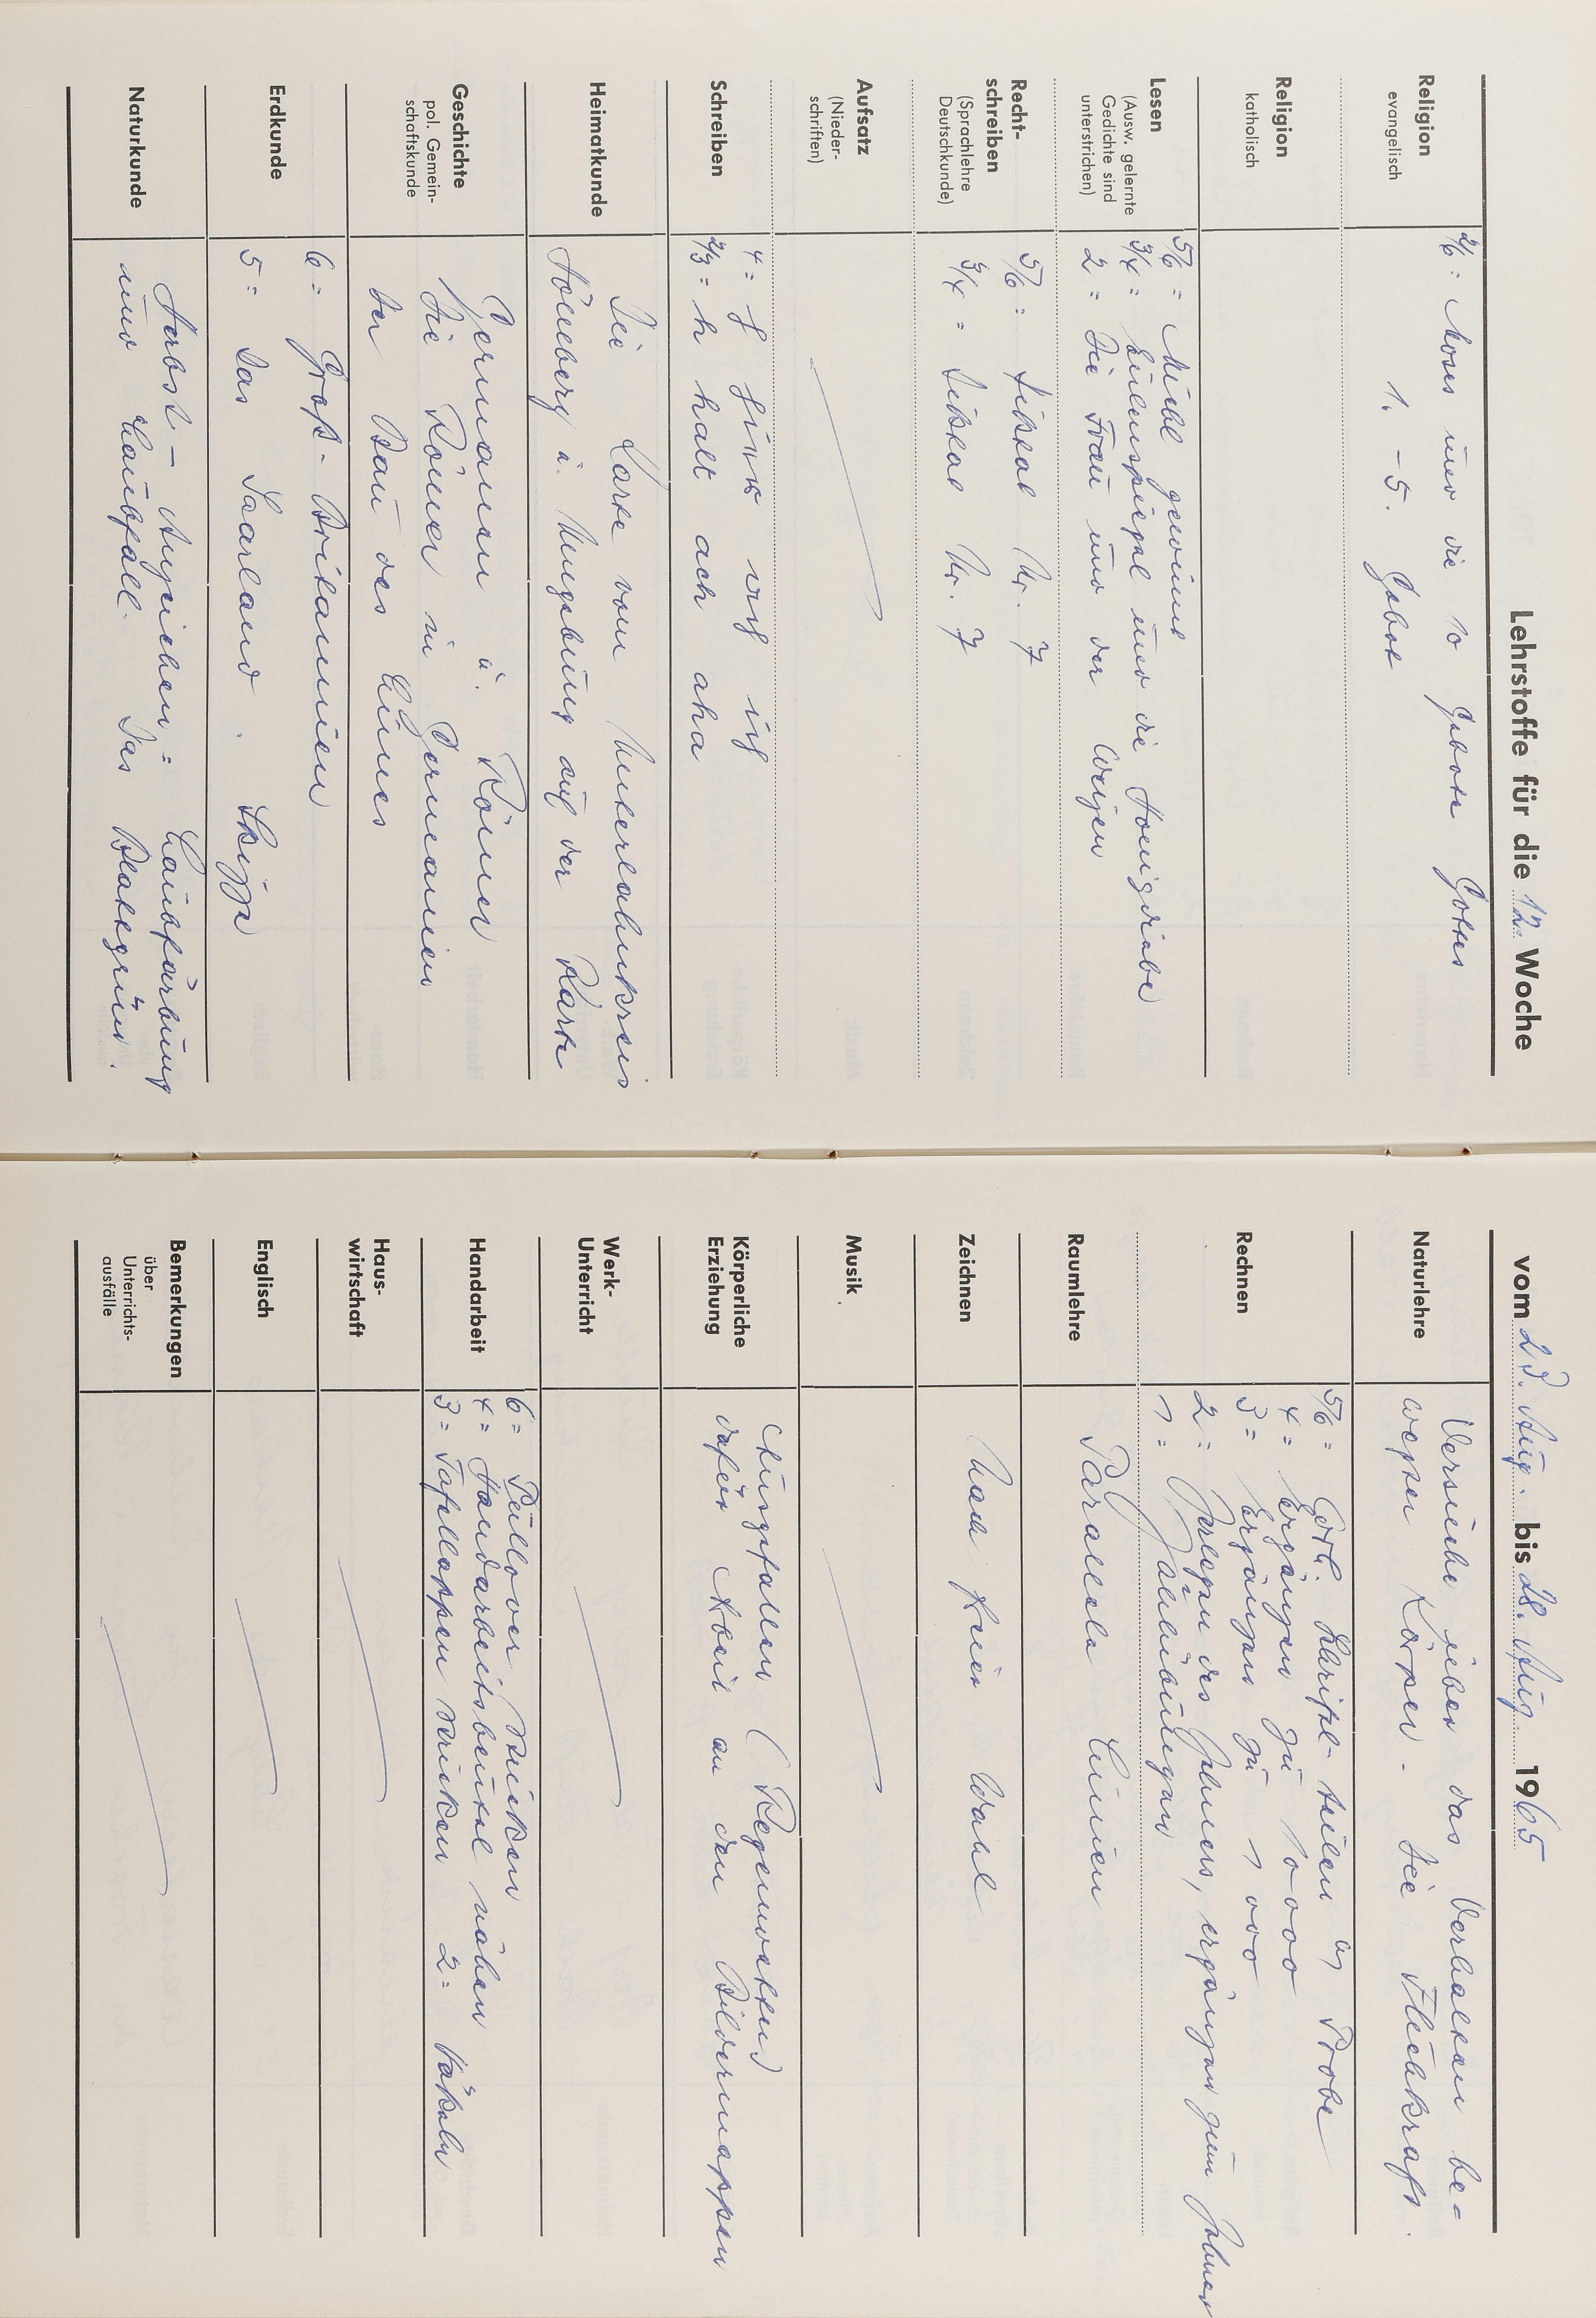 Lehrstoffe für die 12. Woche
Religion
evangelisch
2/6 = Moses und die 10 Gebote Gottes
1. - 5. Gebot
Religion
katholisch
Lesen
(Ausw. gelernte
Gedichte sind
unterstrichen)
5/6 = Michel gewinnt
3/4 = Eulenspiegel und die Honigdiebe
2 = Die Frau und der Weizen
Recht-
schreiben
(Sprachlehre
Deutschkunde)
5/6 = Diktat Nr. 7
3/4 = Diktat Nr. 7
Aufsatz
(Nieder-
schriften)
Schreiben
4 =
2/3 = h halt ach aha
Heimatkunde
Die Karte vom Unterlahnkreis
Höneberg u. Umgebung auf der Karte
Geschichte
pol. Gemein-
schaftskunde
Germanen u. Römer
Die Römer in Germanien
Der Bau des Limes
Erdkunde
6 = Groß-Britannien
5 = Das Saarland. Skizze
Naturkunde
Herbst - Anzeichen = Laubfärbung
und Laubfall. Das Blattgrün.
vom 23. Aug. bis 28. Aug. 1965
Naturlehre
Versuche über das Verhalten be=
wegter Körper. Die Fliehkraft.
Rechnen
5/6 = Schriftl. teilen Probe
4 = Ergänzen zu 10000
3 = Ergänzen zu 1000
2 = Zerlegen des Zehners, ergänzen zum Zehner
1 = Zählübungen
Raumlehre
Parallele Linien
Zeichnen
Nach freier Wahl
Musik
Körperliche
Erziehung
Ausgefallen (Regenwetter)
dafür Arbeit an den Bildermappen
Werk-
Unterricht
Handarbeit
6 = Pullover stricken
4 = Handarbeitsbeutel nähen
3 = Tafellappen stricken 2 = Häkeln
Haus-
wirtschaft
Englisch
Bemerkungen
über
Unterrichts-
ausfälle